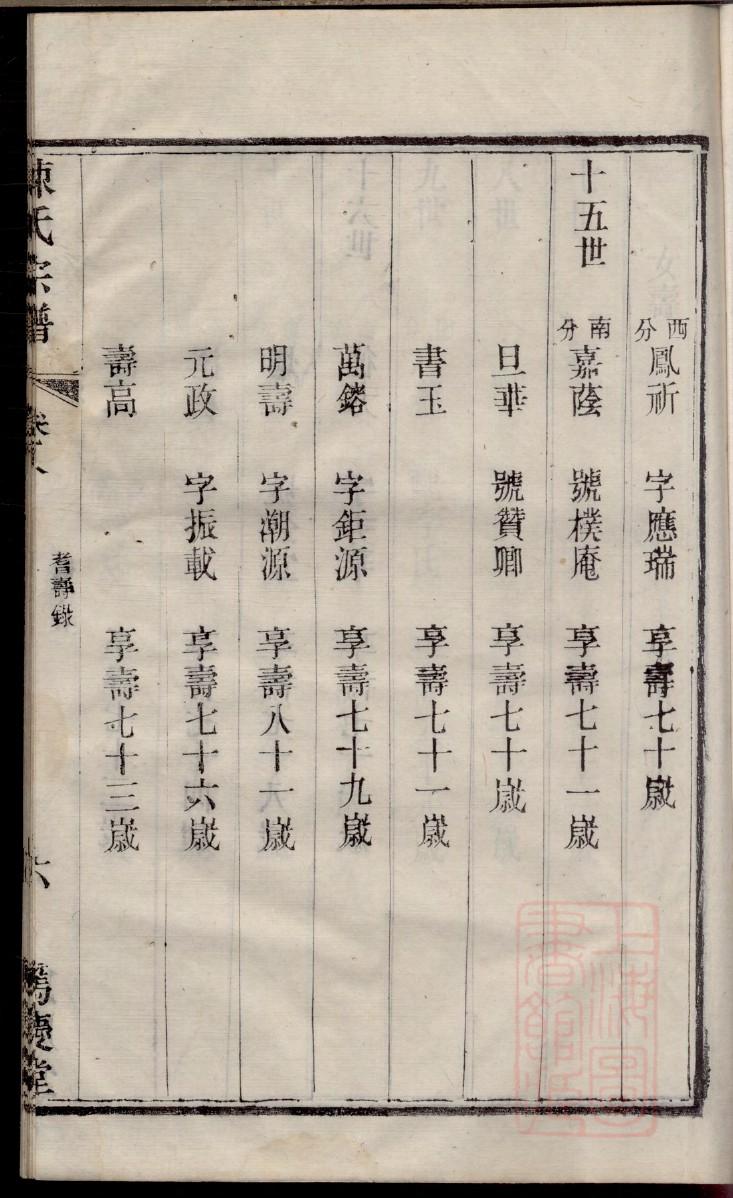 西分鳳祈 字應瑞 享壽七十歲
十五世 南分嘉蔭 號樸庵 享壽七十一歲
旦華 號贊卿 享壽七十歲
書玉 享壽七十一歲
萬鎔 字鉅源 享壽七十九歲
明壽 字潮源 享壽八十一歲
元政 字振載 享壽七十六歲
壽高 享壽七十三歲
陳氏宗譜 耆壽錄 六
上海圖書館藏